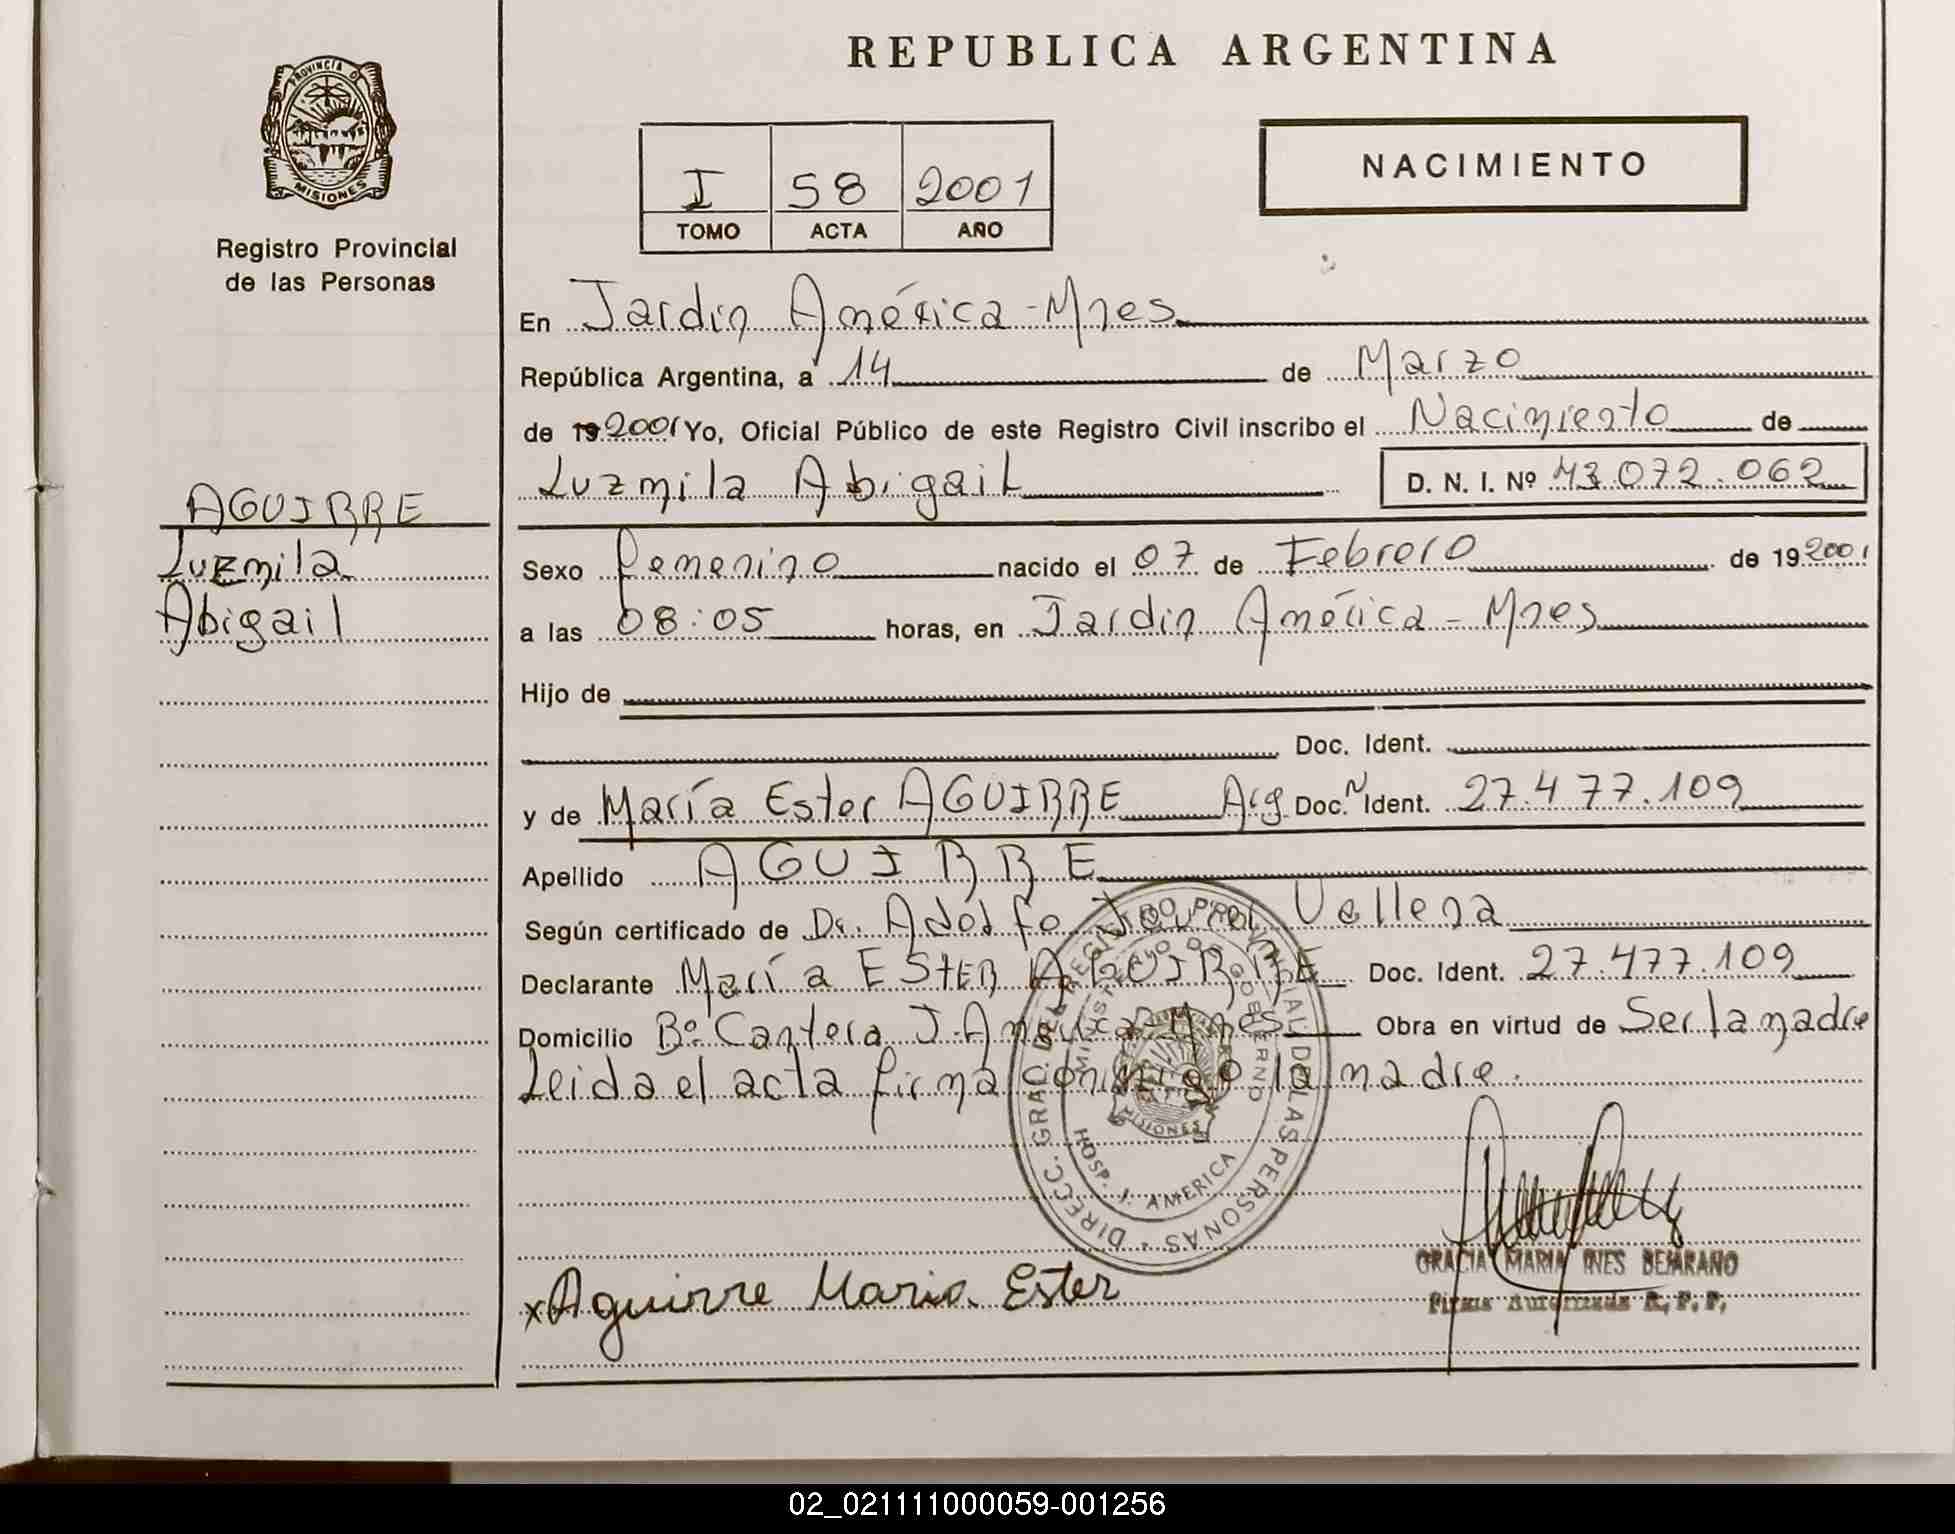 REPUBLICA ARGENTINA
PROVINCIA D
MISIONES
Registro Provincial
de las Personas
I 58 2001
TOMO ACTA AÑO
NACIMIENTO
En Jardín América - Mnes
República Argentina, a 14 de Marzo
de 19 2001 Yo, Oficial Público de este Registro Civil inscribo el Nacimiento de
Luzmila Abigail D. N. I. Nº 43.072.062
AGUIRRE
Luzmila
Abigail
Sexo femenino nacido el 07 de Febrero de 19 2001
a las 08:05 horas, en Jardin América - Mnes
Hijo de
Doc. Ident.
y de María Ester AGUIRRE Arg Doc. Ident. 27.477.109
Apellido AGUIRRE
Según certificado de Dr. Adolfo
Declarante María ESTER AGUIRRE Doc. Ident. 27.477.109
Domicilio Bº Cantera J. América - Mnes Obra en virtud de Ser la madre
Leida el acta firma conmigo la madre.
DIRECC. GRAL. DEL REGISTRO PROVINCIAL DE LAS PERSONAS
MINISTERIO DE GOBIERNO
MISIONES
HOSP. J. AMERICA
GRACIA MARIA INES BEJARANO
Firma Autorizada R. P. P.
x Aguirre Maria Ester
02_021111000059-001256